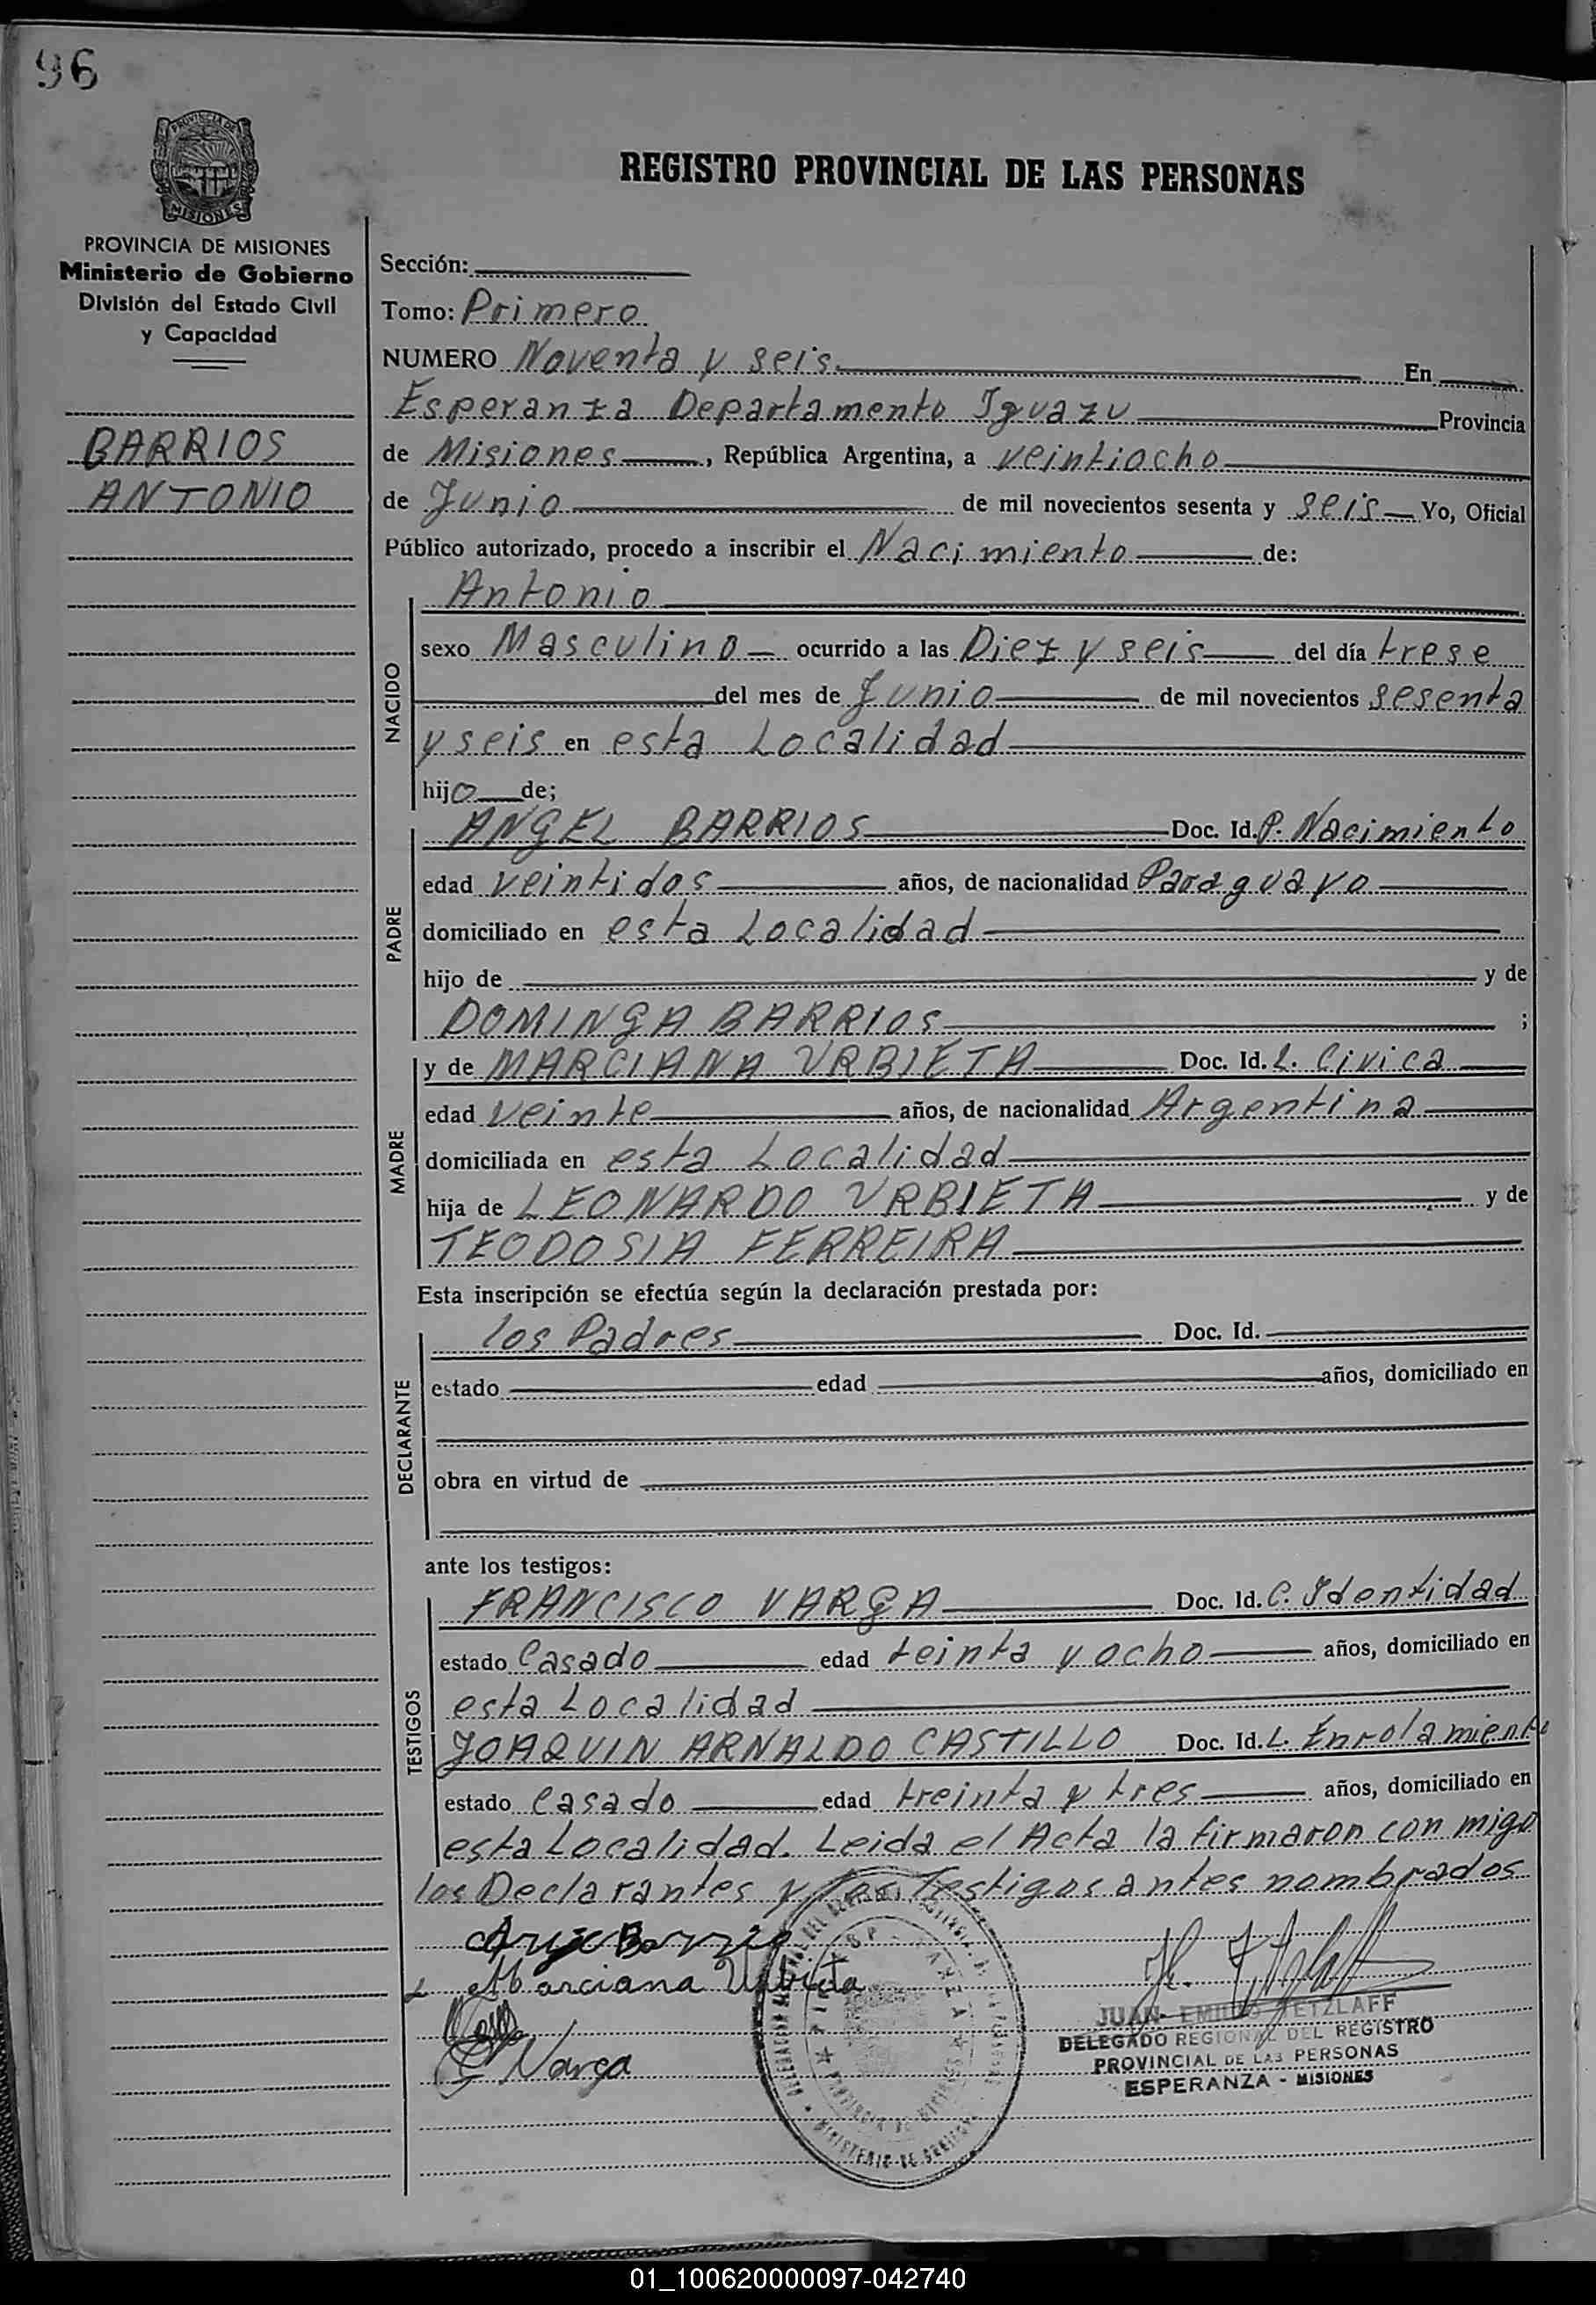 96
PROVINCIA DE
MISIONES
PROVINCIA DE MISIONES
Ministerio de Gobierno
División del Estado Civil
y Capacidad
BARRIOS
ANTONIO
REGISTRO PROVINCIAL DE LAS PERSONAS
Sección:
Tomo: Primero
NUMERO Noventa y seis. En
Esperanza Departamento Iguazu Provincia
de Misiones, República Argentina, a veintiocho
de Junio de mil novecientos sesenta y seis Yo, Oficial
Público autorizado, procedo a inscribir el Nacimiento de:
NACIDO
Antonio
sexo Masculino ocurrido a las Diez y seis del día trese
del mes de Junio de mil novecientos sesenta
y seis en esta Localidad
hijo de;
PADRE
ANGEL BARRIOS Doc. Id. P. Nacimiento
edad veintidos años, de nacionalidad Paraguayo
domiciliado en esta Localidad
hijo de y de
DOMINGA BARRIOS ;
MADRE
y de MARCIANA URBIETA Doc. Id. L. Civica
edad veinte años, de nacionalidad Argentina
domiciliada en esta Localidad
hija de LEONARDO URBIETA y de
TEODOSIA FERREIRA
Esta inscripción se efectúa según la declaración prestada por:
DECLARANTE
los Padres Doc. Id.
estado edad años, domiciliado en
obra en virtud de
ante los testigos:
TESTIGOS
FRANCISCO VARGA Doc. Id. C. Identidad
estado Casado edad teinta y ocho años, domiciliado en
esta Localidad
JOAQUIN ARNALDO CASTILLO Doc. Id. L. Enrolamiento
estado Casado edad treinta y tres años, domiciliado en
esta Localidad. Leida el Acta la firmaron con migo
los Declarantes y los Testigos antes nombrados
Marciana Urbieta
Varga
JUAN EMILIO RETZLAFF
DELEGADO REGIONAL DEL REGISTRO
PROVINCIAL DE LAS PERSONAS
ESPERANZA - MISIONES
MINISTERIO DE GOBIERNO
01_100620000097-042740